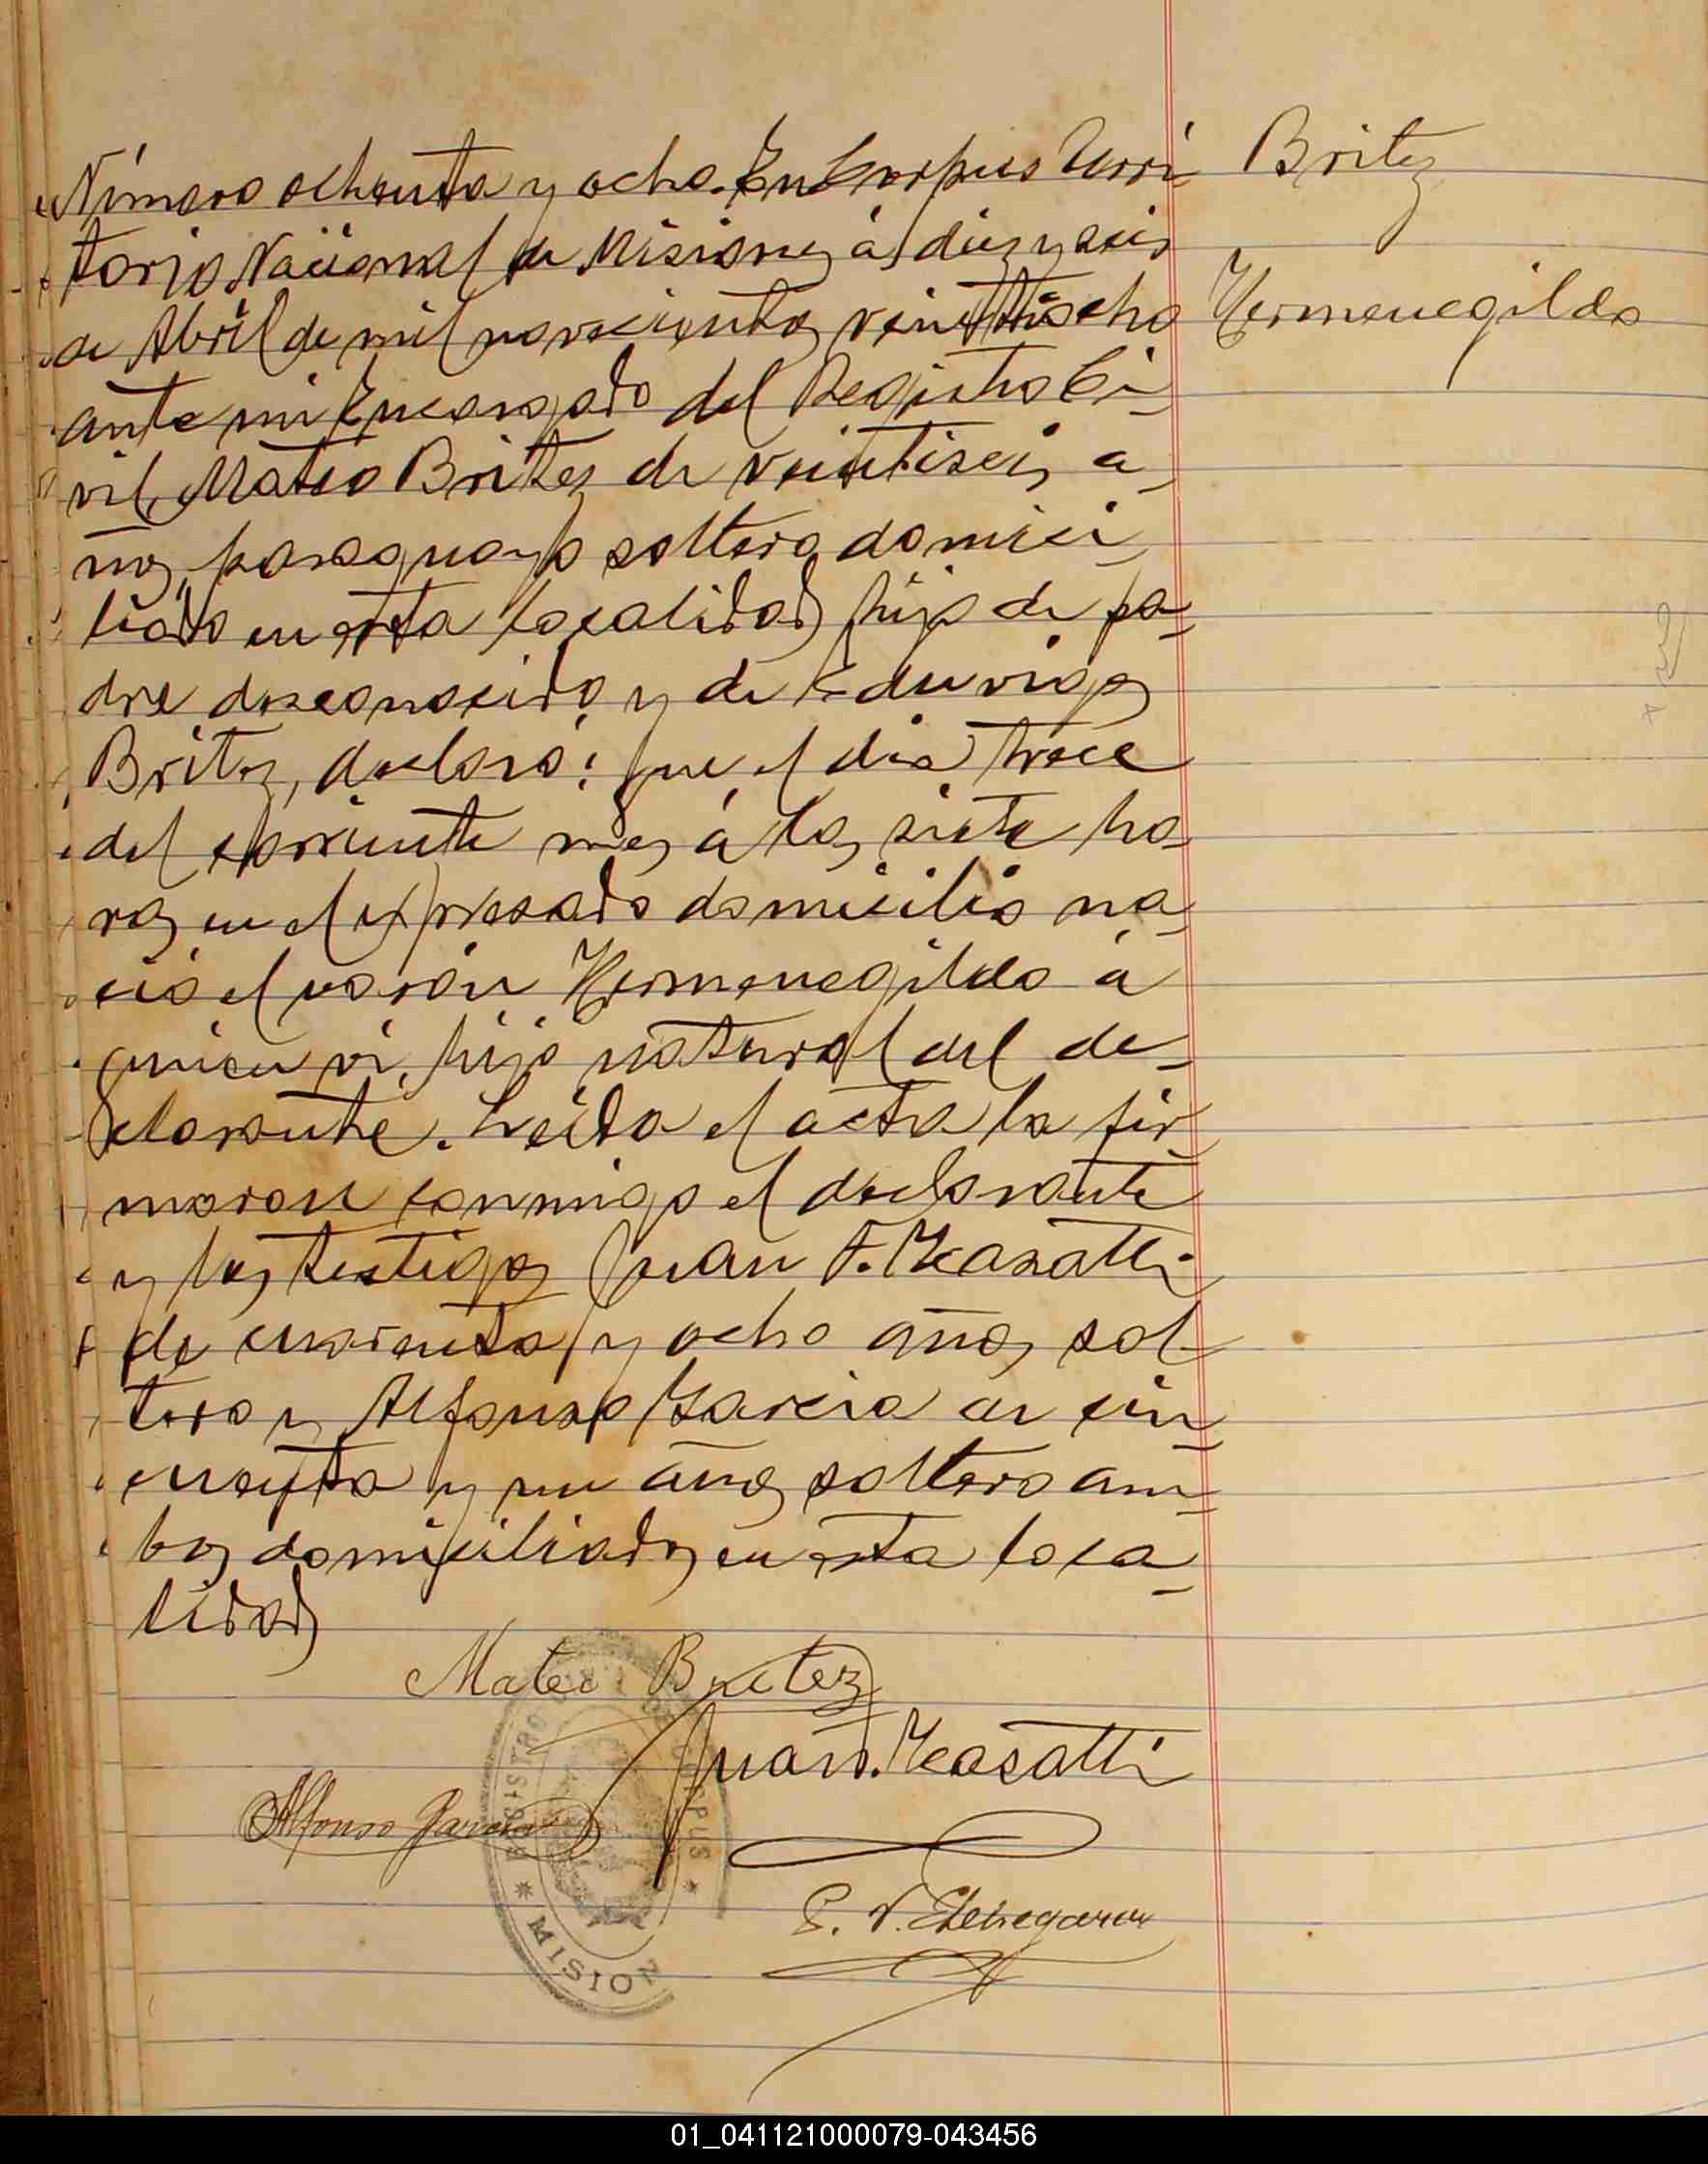 Número ochenta y ocho. En Corpus Terri
torio Nacional de Misiones á diez y seis
de Abril de mil novecientos veintiocho
ante mi Encargado del Registro Ci-
vil, Mateo Britez de veintiseis a-
ños, paraguayo soltero domici-
liado en esta localidad, hijo de pa-
dre desconocido y de Eduviges
Britez, declaró: Que el dia trece
del corriente mes á las siete ho-
ras en el expresado domicilio na-
ció el varón Hermenegildo á
quien vi, hijo natural del de-
clarante. Leida el acta la fir
maron conmigo el declarante
y los testigos Juan F.
de cuarenta y ocho años, sol-
tero y Alfonso Garcia de cin-
cuenta y un años soltero am-
bos domiciliados en esta loca-
lidad
Britez
Hermenegildo
Mateo Britez
Juan
Alfonso Garcia
REGISTRO CORPUS
* MISION
01_041121000079-043456